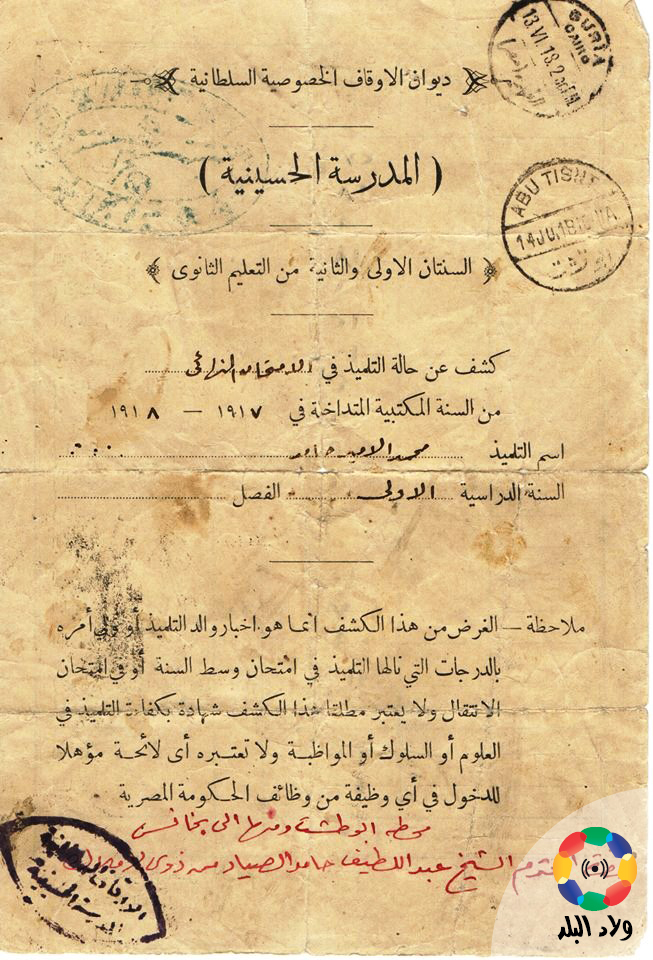 SURIA
CAIRO
13.VI.18.2 PM
ديوان الاوقاف الخصوصية السلطانية
( المدرسة الحسينية )
ABU TISH
14 JU.18
السنتان الاولى والثانية من التعليم الثانوى
كشف عن حالة التلميذ في الامتحان النهائى
من السنة المكتبية المتداخلة في ١٩١٧ — ١٩١٨
اسم التلميذ محمد الامير حامد
السنة الدراسية الاولى الفصل
ملاحظة — الغرض من هذا الكشف انما هو اخبار والد التلميذ أو ولي أمره
بالدرجات التي نالها التلميذ في امتحان وسط السنة أو في امتحان
الانتقال ولا يعتبر مطلقا هذا الكشف شهادة بكفاءة التلميذ في
العلوم أو السلوك أو المواظبة ولا تعتبره أى لائحة مؤهلا
للدخول في أي وظيفة من وظائف الحكومة المصرية
محطه ابو طشت ومنها الى بخانس
الشيخ عبد اللطيف حامد الصياد من ذوى
الاوقاف السلطانية
المدرسة الحسينية
ولاد البلد